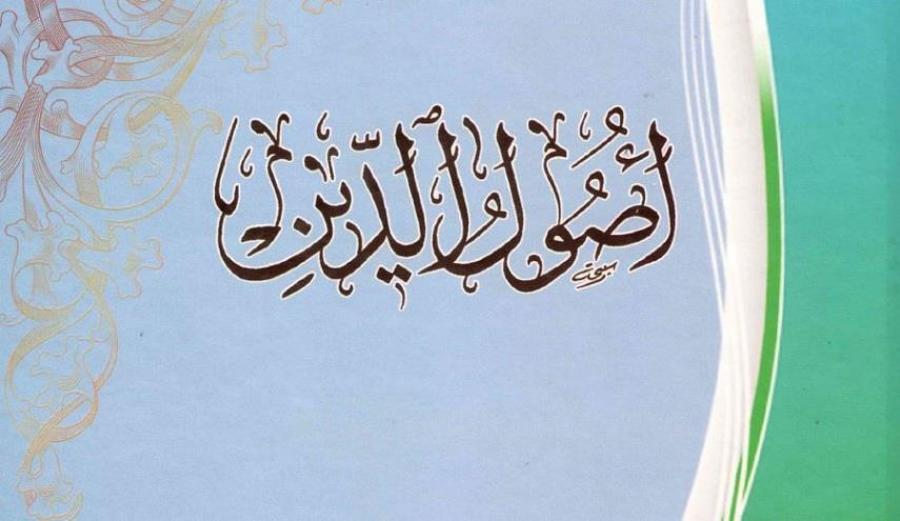 أُصُولُ الدِّينِ